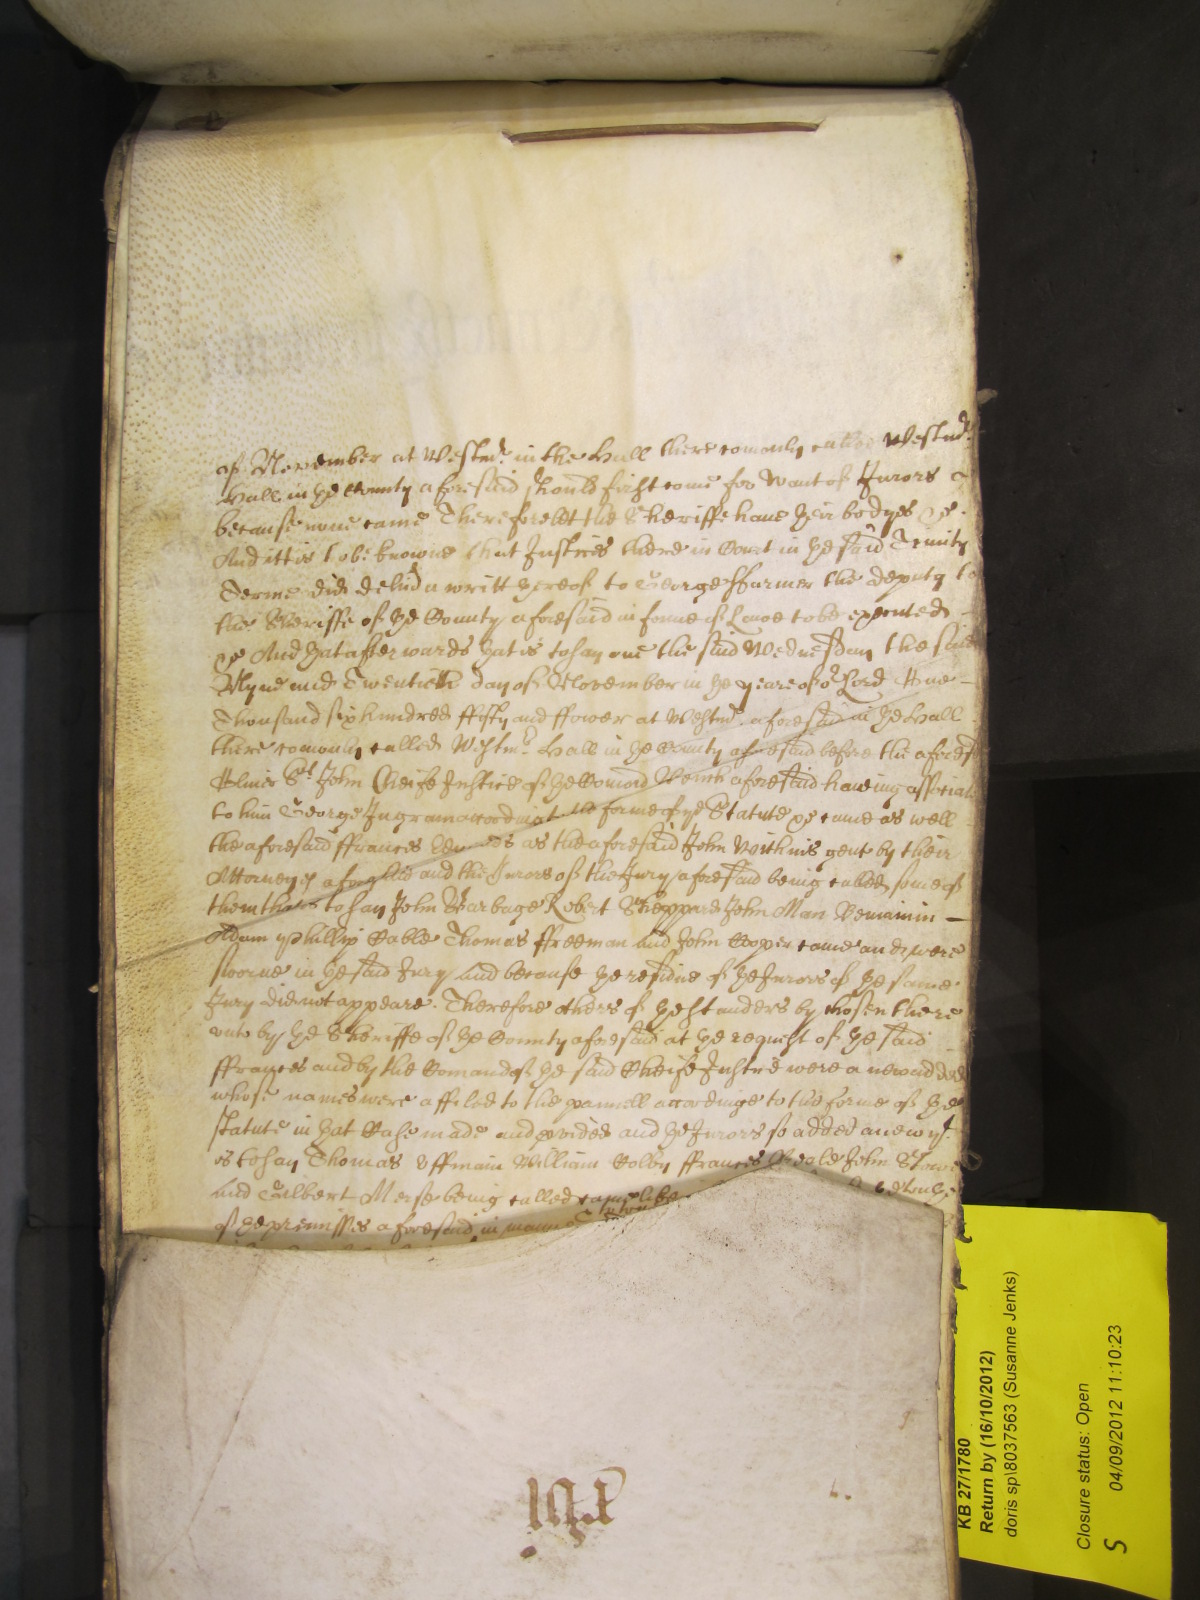 of November at Westmr. in the Hall there comonly called Westmr.
Hall in ye County aforesaid should first come for want of Jurors &
because none came Therefore let the Sheriffe have their bodyes &c.
And itt is to be knowne that Justices here in Court in ye said Trinity
Terme did deliu a writt thereof to George ffarmer the deputy to
the Sheriffe of ye County aforesaid in forme of Lawe to be executed
&c And yat afterwards yat is to say one the said Wednesday the said
Nyne and Twentieth day of November in ye yeare of or Lord One
Thousand six hundred ffifty and ffower at Westmr. aforesaid in ye Hall
there comonly called Westmr. Hall in ye County aforesaid before the aforesd
Oliver St. John Cheife Justice of ye Comon Bench aforesaid haveing associat
to him George Ingram accordinge to the forme of ye Statute &c came as well
the aforesaid ffrances as the aforesaid John gent by their
Attorneyes aforesaid and the Jurors of the Jury aforesaid being called some of
them that is to say John Robert Sheppard John Man Beniamin
Adam Phillip Cable Thomas ffreeman and John Cooper came and were
sworne in ye said Jury And because ye residue of ye Jurors of ye same
Jury did not appeare. Therefore others of ye standers by chosen there
vnto by ye Sheriffe of ye County aforesaid at ye request of ye said
ffrances and by the Comand of ye said Cheife Justice were a new added
whose names were affiled to the pannell accordinge to the forme of ye
Statute in yat Case made and provided and ye Jurors so added anew yt.
is to say Thomas Vffmain William Colby ffrances John
and Gilbert being called came like
of ye premisses aforesaid in
xvi
KB 27/1780
Return by (16/10/2012)
doris sp\8037563 (Susanne Jenks)
Closure status: Open
S 04/09/2012 11:10:23